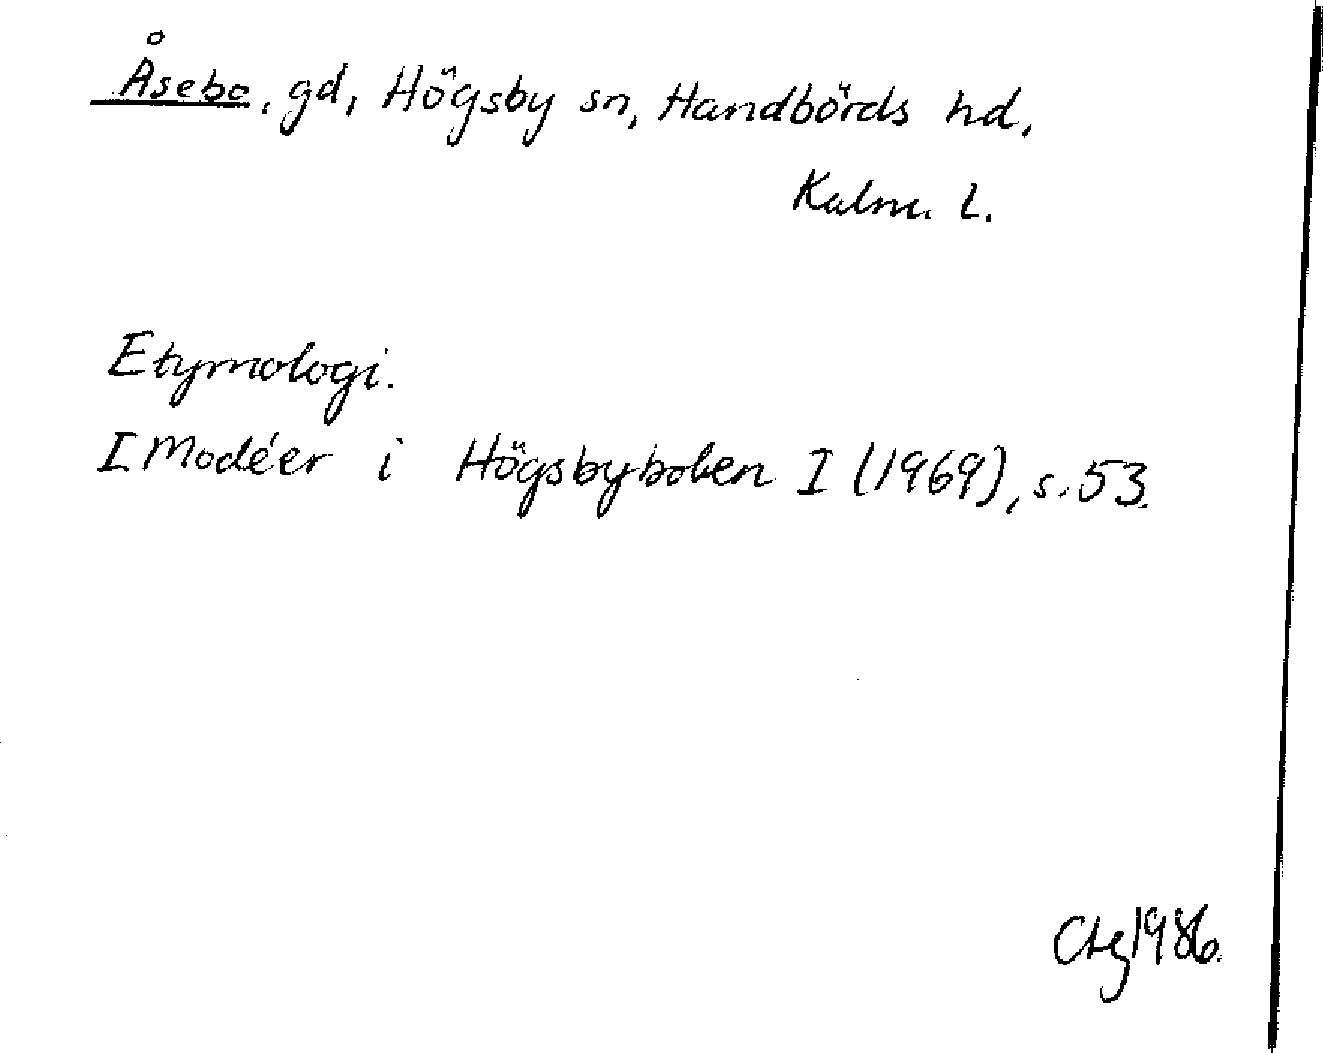 Åsebo, gd, Högsby sn, Handbörds hd,
Kalm. L.
Etymologi.
I Modéer i Högsbyboken I (1969), s. 53.
1986.